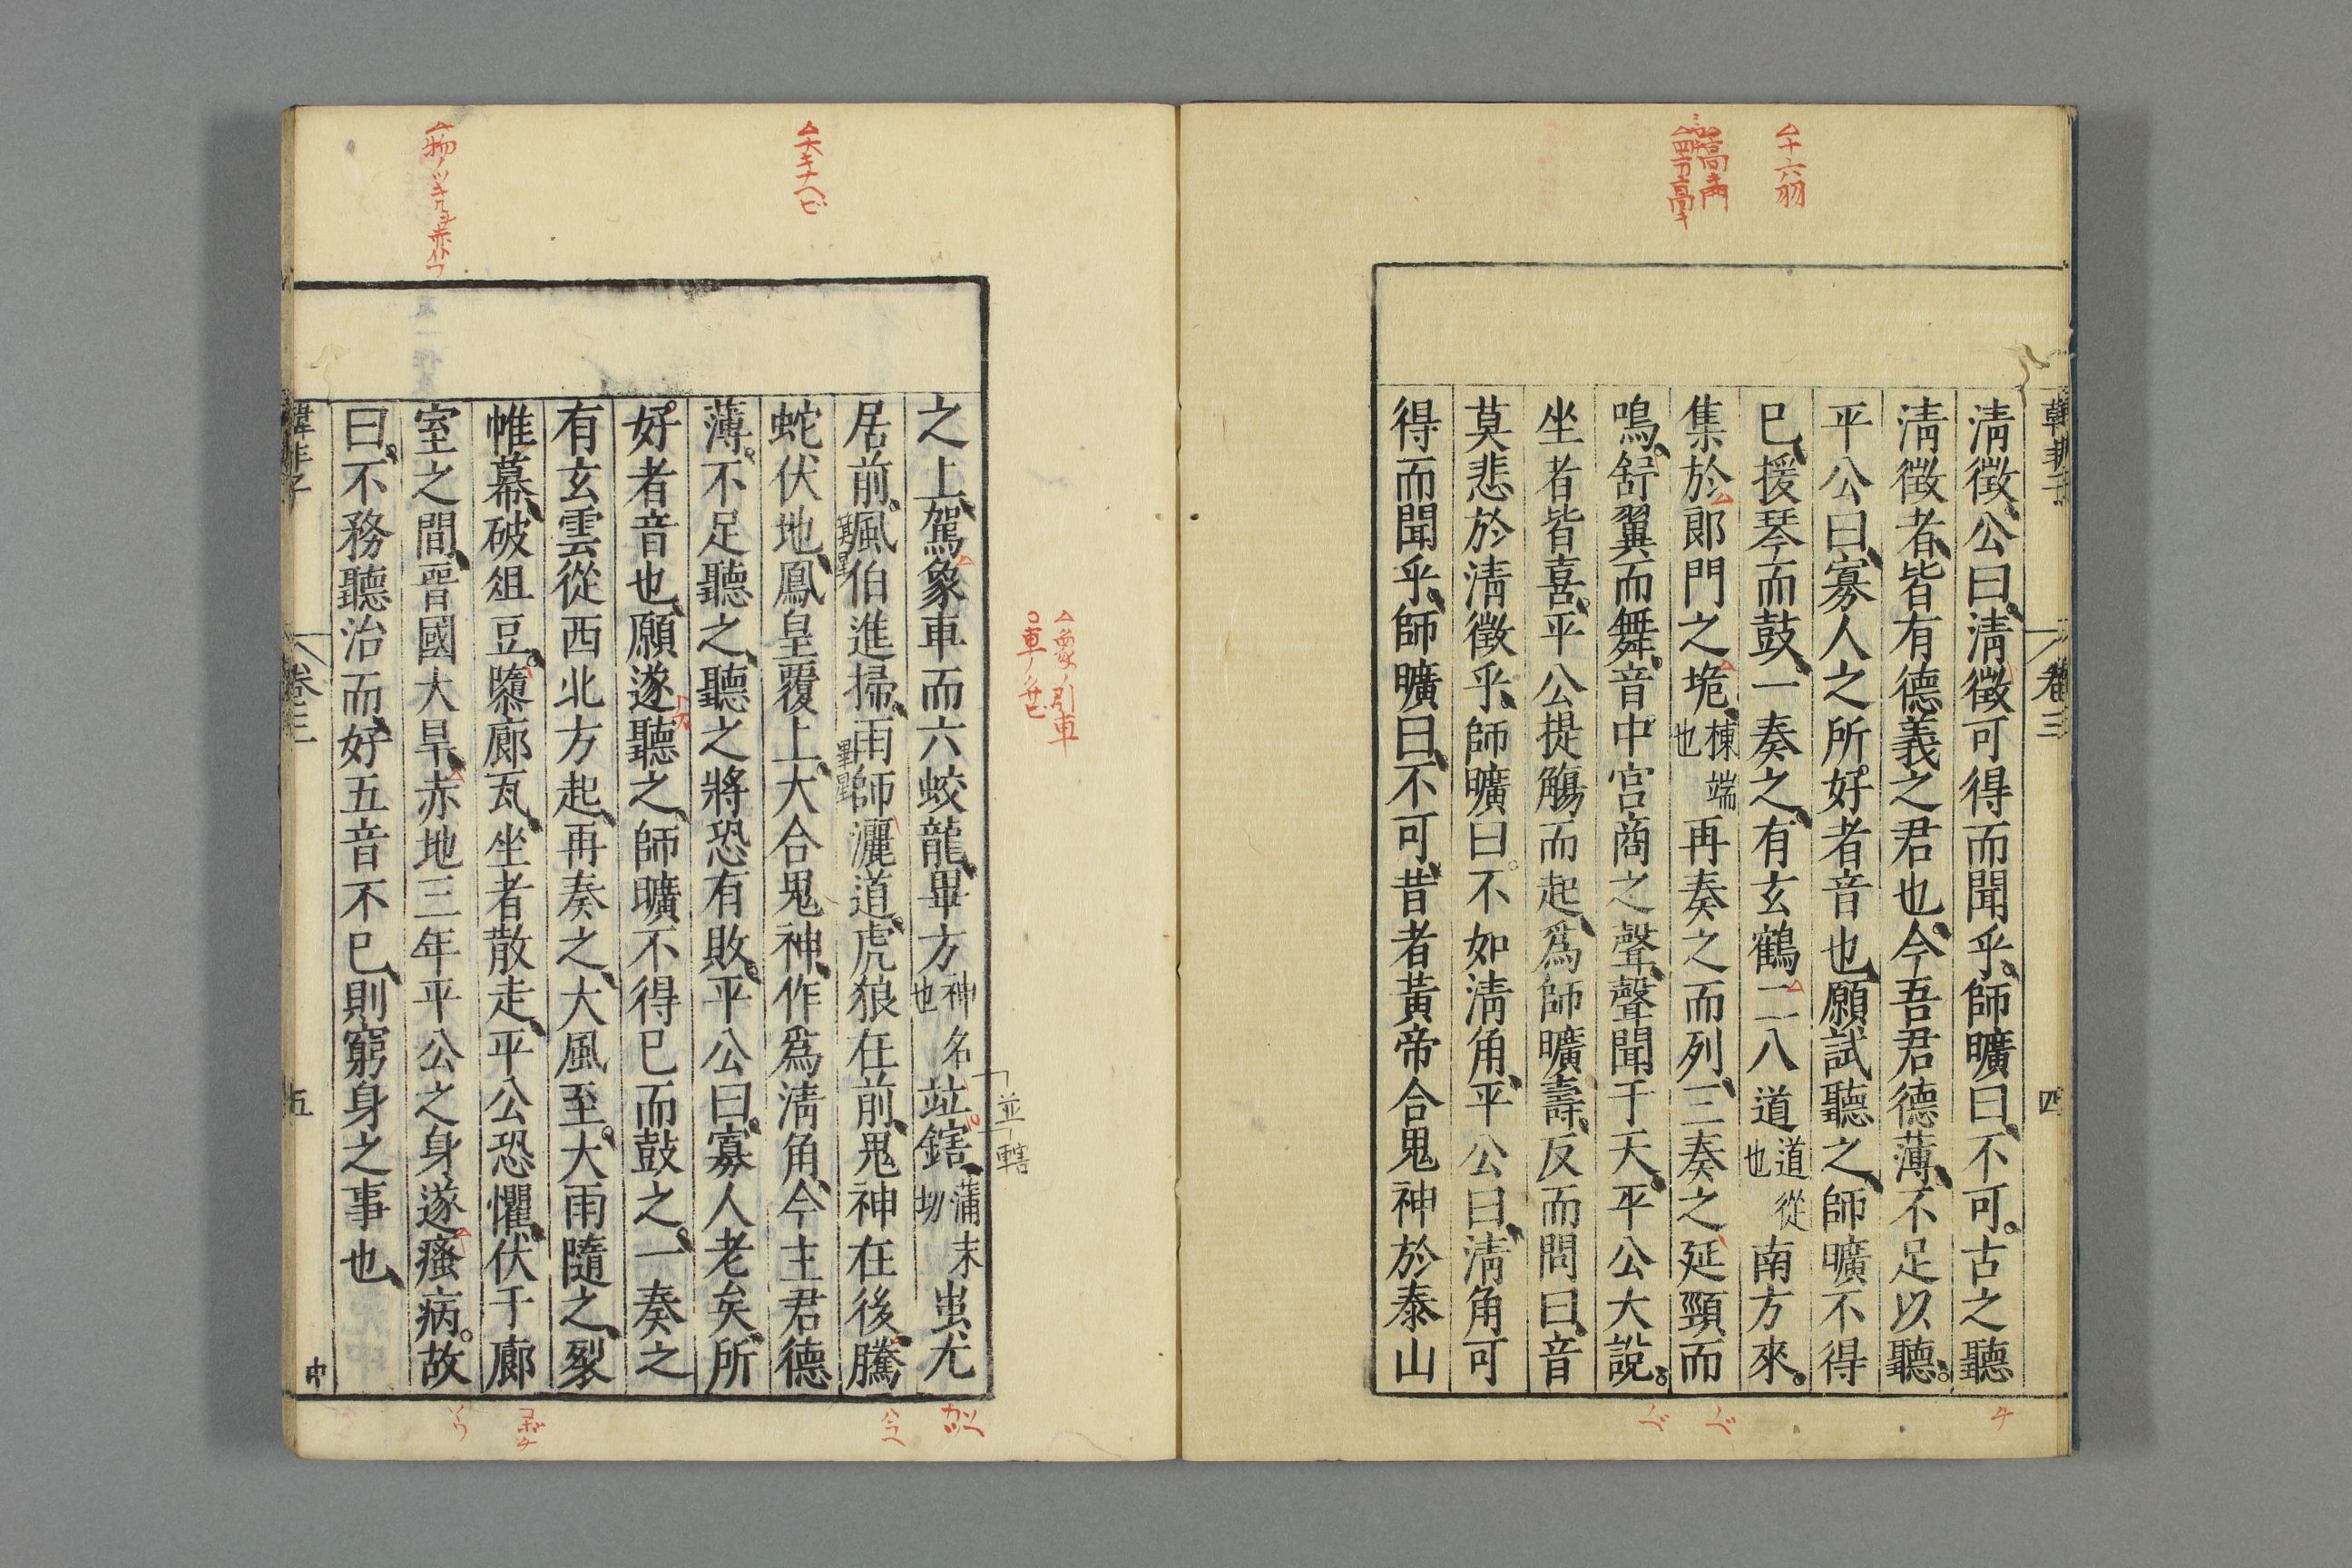 △十六羽
韓非子 卷三 四
淸徵公曰淸徵可得而聞乎師曠曰不可古之聽
淸徵者皆有德義之君也今吾君德薄不足以聽
平公曰寡人之所好者音也願試聽之師曠不得
已援琴而鼓一奏之有玄鶴二八道道從也南方來
集於郞門之垝棟端也再奏之而列三奏之延頸而
鳴舒翼而舞音中宮商之聲聲聞于天平公大說
坐者皆喜平公提觴而起爲師曠壽反而問曰音
莫悲於淸徵乎師曠曰不如淸角平公曰淸角可
得而聞乎師曠曰不可昔者黃帝合鬼神於泰山
△象ノ引車
○車ノクサビ
並 轄
之上駕象車而六蛟龍畢方神名也竝鎋蒲末切蚩尤
居前風伯進掃雨師灑道虎狼在前鬼神在後騰
箕星
畢星
△大キナヘビ
蛇伏地鳳皇覆上大合鬼神作爲淸角今主君德
薄不足聽之聽之將恐有敗平公曰寡人老矣所
好者音也願遂聽之師曠不得已而鼓之一奏之
有玄雲從西北方起再奏之大風至大雨隨之裂
帷幕破俎豆隳廊瓦坐者散走平公恐懼伏于廊
室之間晉國大旱赤地三年平公之身遂癃病故
曰不務聽治而好五音不已則窮身之事也
韓非子 卷三 五